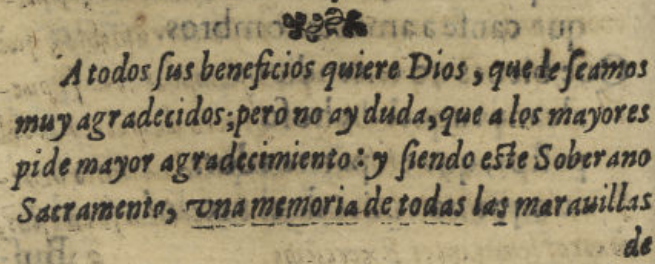 A todos ſus beneficios quiere Dios, que le ſeamos
muy agradecidos; pero no ay duda, que a los mayores
pide mayor agradecimiento: y ſiendo eſte Soberano
Sacramento, vna memoria de todas las marauillas
de